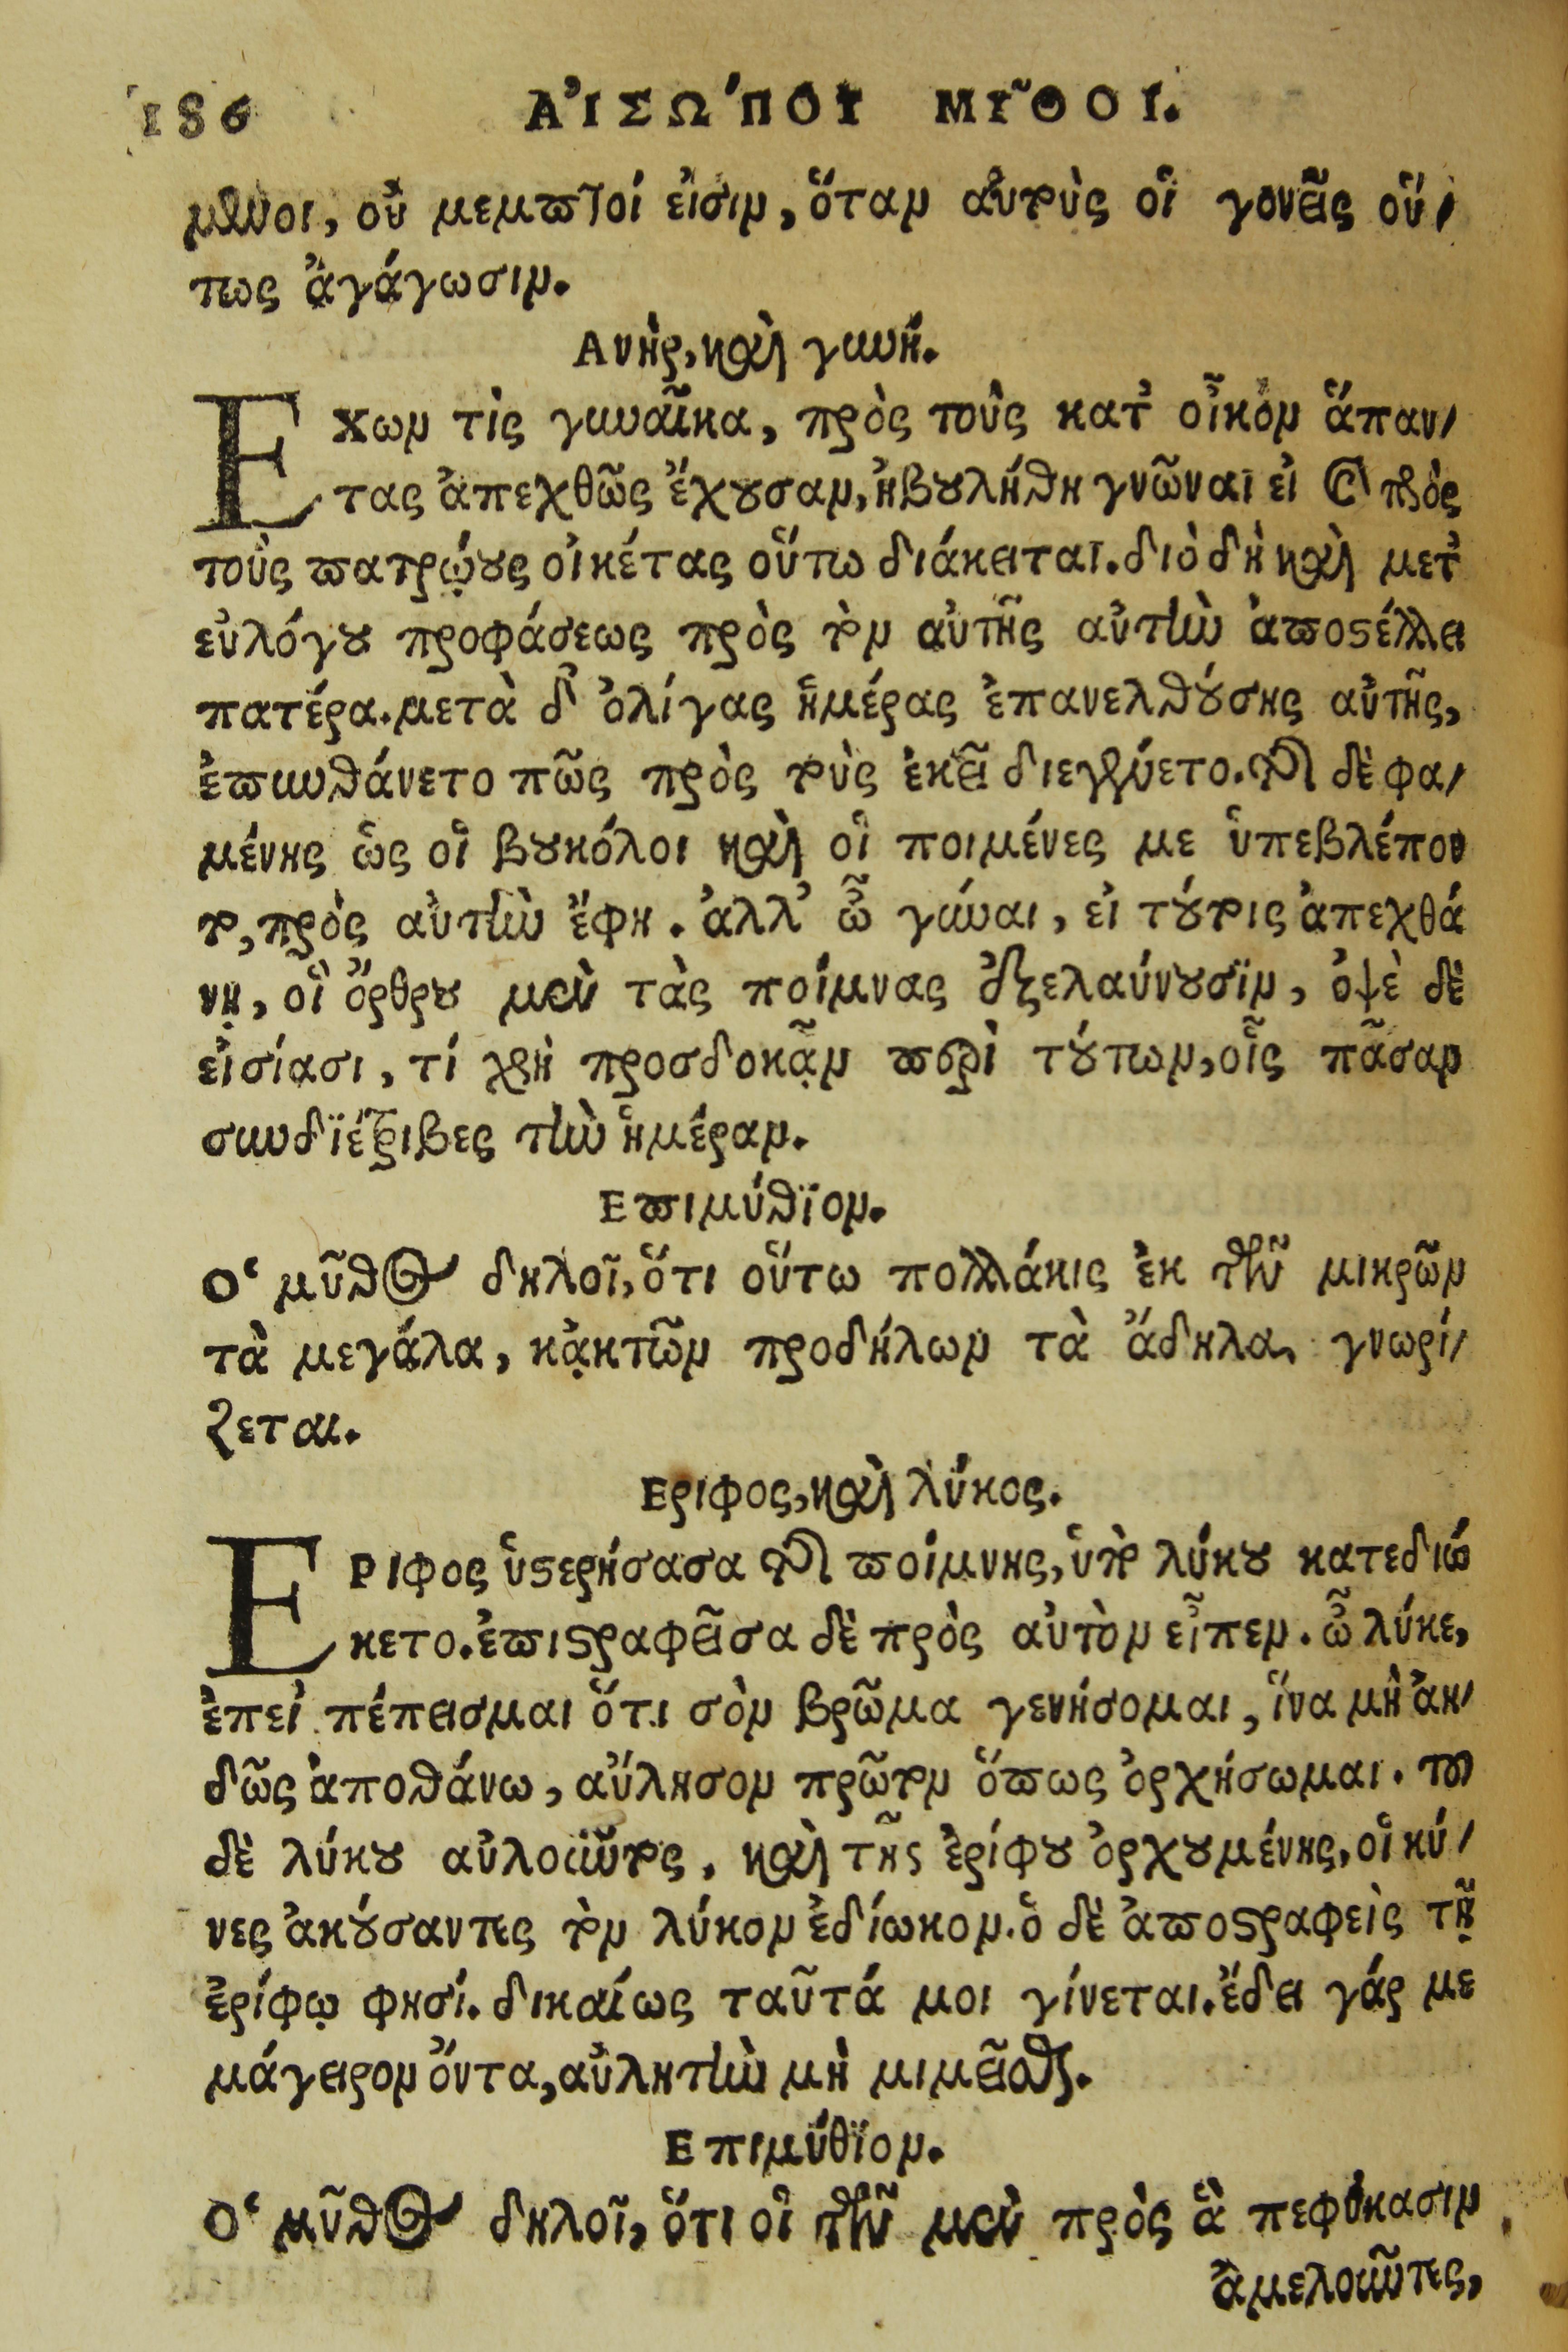 186 ΑἸΣΩ´ΠΟΥ ΜΥ͂ΘΟΙ.
μῳοι, οὐ μεμπτοί εἰσιν, ὅταν αὐτοὺς οἱ γονεῖς οὕ-
τως ἀγάγωσιν.
Ανὴρ, καὶ γυνή.
Εχων τὶς γυναῖκα, πρὸς τοὺς κατ᾽ οἶκον ἅπαν-
τας ἀπεχθῶς ἔχουσαν, ἠβουλήθη γνῶναι εἰ καὶ πρὸς
τοὺς πατρῴους οἰκέτας οὕτω διάκειται. διὸ δὴ καὶ μετ᾽
εὐλόγου προφάσεως πρὸς τὸν αὐτῆς αὐτὴν ἀποστέλλει
πατέρα. μετὰ δ᾽ ὀλίγας ἡμέρας ἐπανελθούσης αὐτῆς,
ἐπυνθάνετο πῶς πρὸς τοὺς ἐκεῖ διεγένετο. τῆς δὲ φα-
μένης ὡς οἱ βουκόλοι καὶ οἱ ποιμένες με ὑπεβλέπον
το, πρὸς αὐτὴν ἔφη. ἀλλ᾽ ὦ γύναι, εἰ τούτοις ἀπεχθά
νῃ, οἳ ὄρθρου μὲν τὰς ποίμνας ἐξελαύνουσϊν, ὀψὲ δὲ
εἰσίασι, τί χρὴ προσδοκᾷν περὶ τούτων, οἷς πᾶσαν
συνδϊέτριβες τὴν ἡμέραν.
Επιμύθϊον.
Ο῾ μῦθος δηλοῖ, ὅτι οὕτω πολλάκις ἐκ τῶν μικρῶν
τὰ μεγάλα, κᾀκτῶν προδήλων τὰ ἄδηλα γνωρί-
ζεται.
Εριφος, καὶ λύκος.
ΕΡιφος ὑστερήσασα τῆς ποίμνης, ὑπὸ λύκου κατεδιώ
κετο. ἐπιστραφεῖσα δὲ πρὸς αὐτὸν εἶπεν. ὦ λύκε,
ἐπεὶ πέπεισμαι ὅτι σὸν βρῶμα γενήσομαι, ἵνα μὴ ἀη-
δῶς ἀποθάνω, αὔλησον πρῶτον ὅπως ὀρχήσωμαι. τοῦ
δὲ λύκου αὐλοῦντος, καὶ τῆς ἐρίφου ὀρχουμένης, οἱ κύ-
νες ἀκούσαντες τὸν λύκον ἐδίωκον. ὁ δὲ ἀποστραφεὶς τῇ
ἐρίφῳ φησί. δικαίως ταῦτά μοι γίνεται. ἔδει γάρ με
μάγειρον ὄντα, αὐλητὴν μὴ μιμεῖσθαι.
Επιμύθϊον.
Ο῾ μῦθος δηλοῖ, ὅτι οἱ τῶν μὲν πρὸς ἃ πεφύκασιν
ἀμελοῦντες,